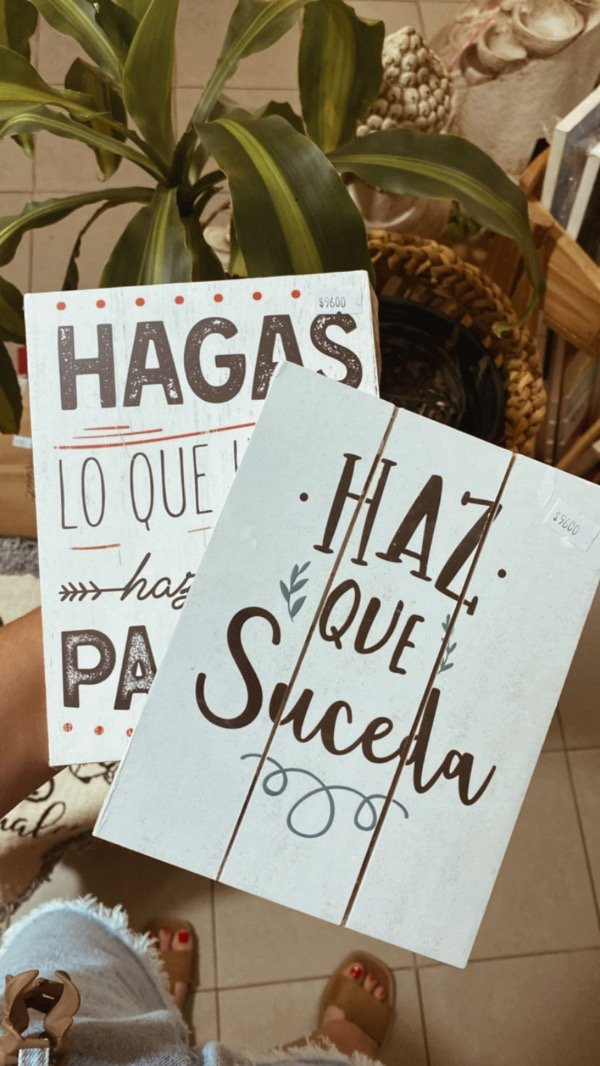 $9600
HAGAS
LO QUE
haz
PA
$9600
HAZ
QUE
Suceda